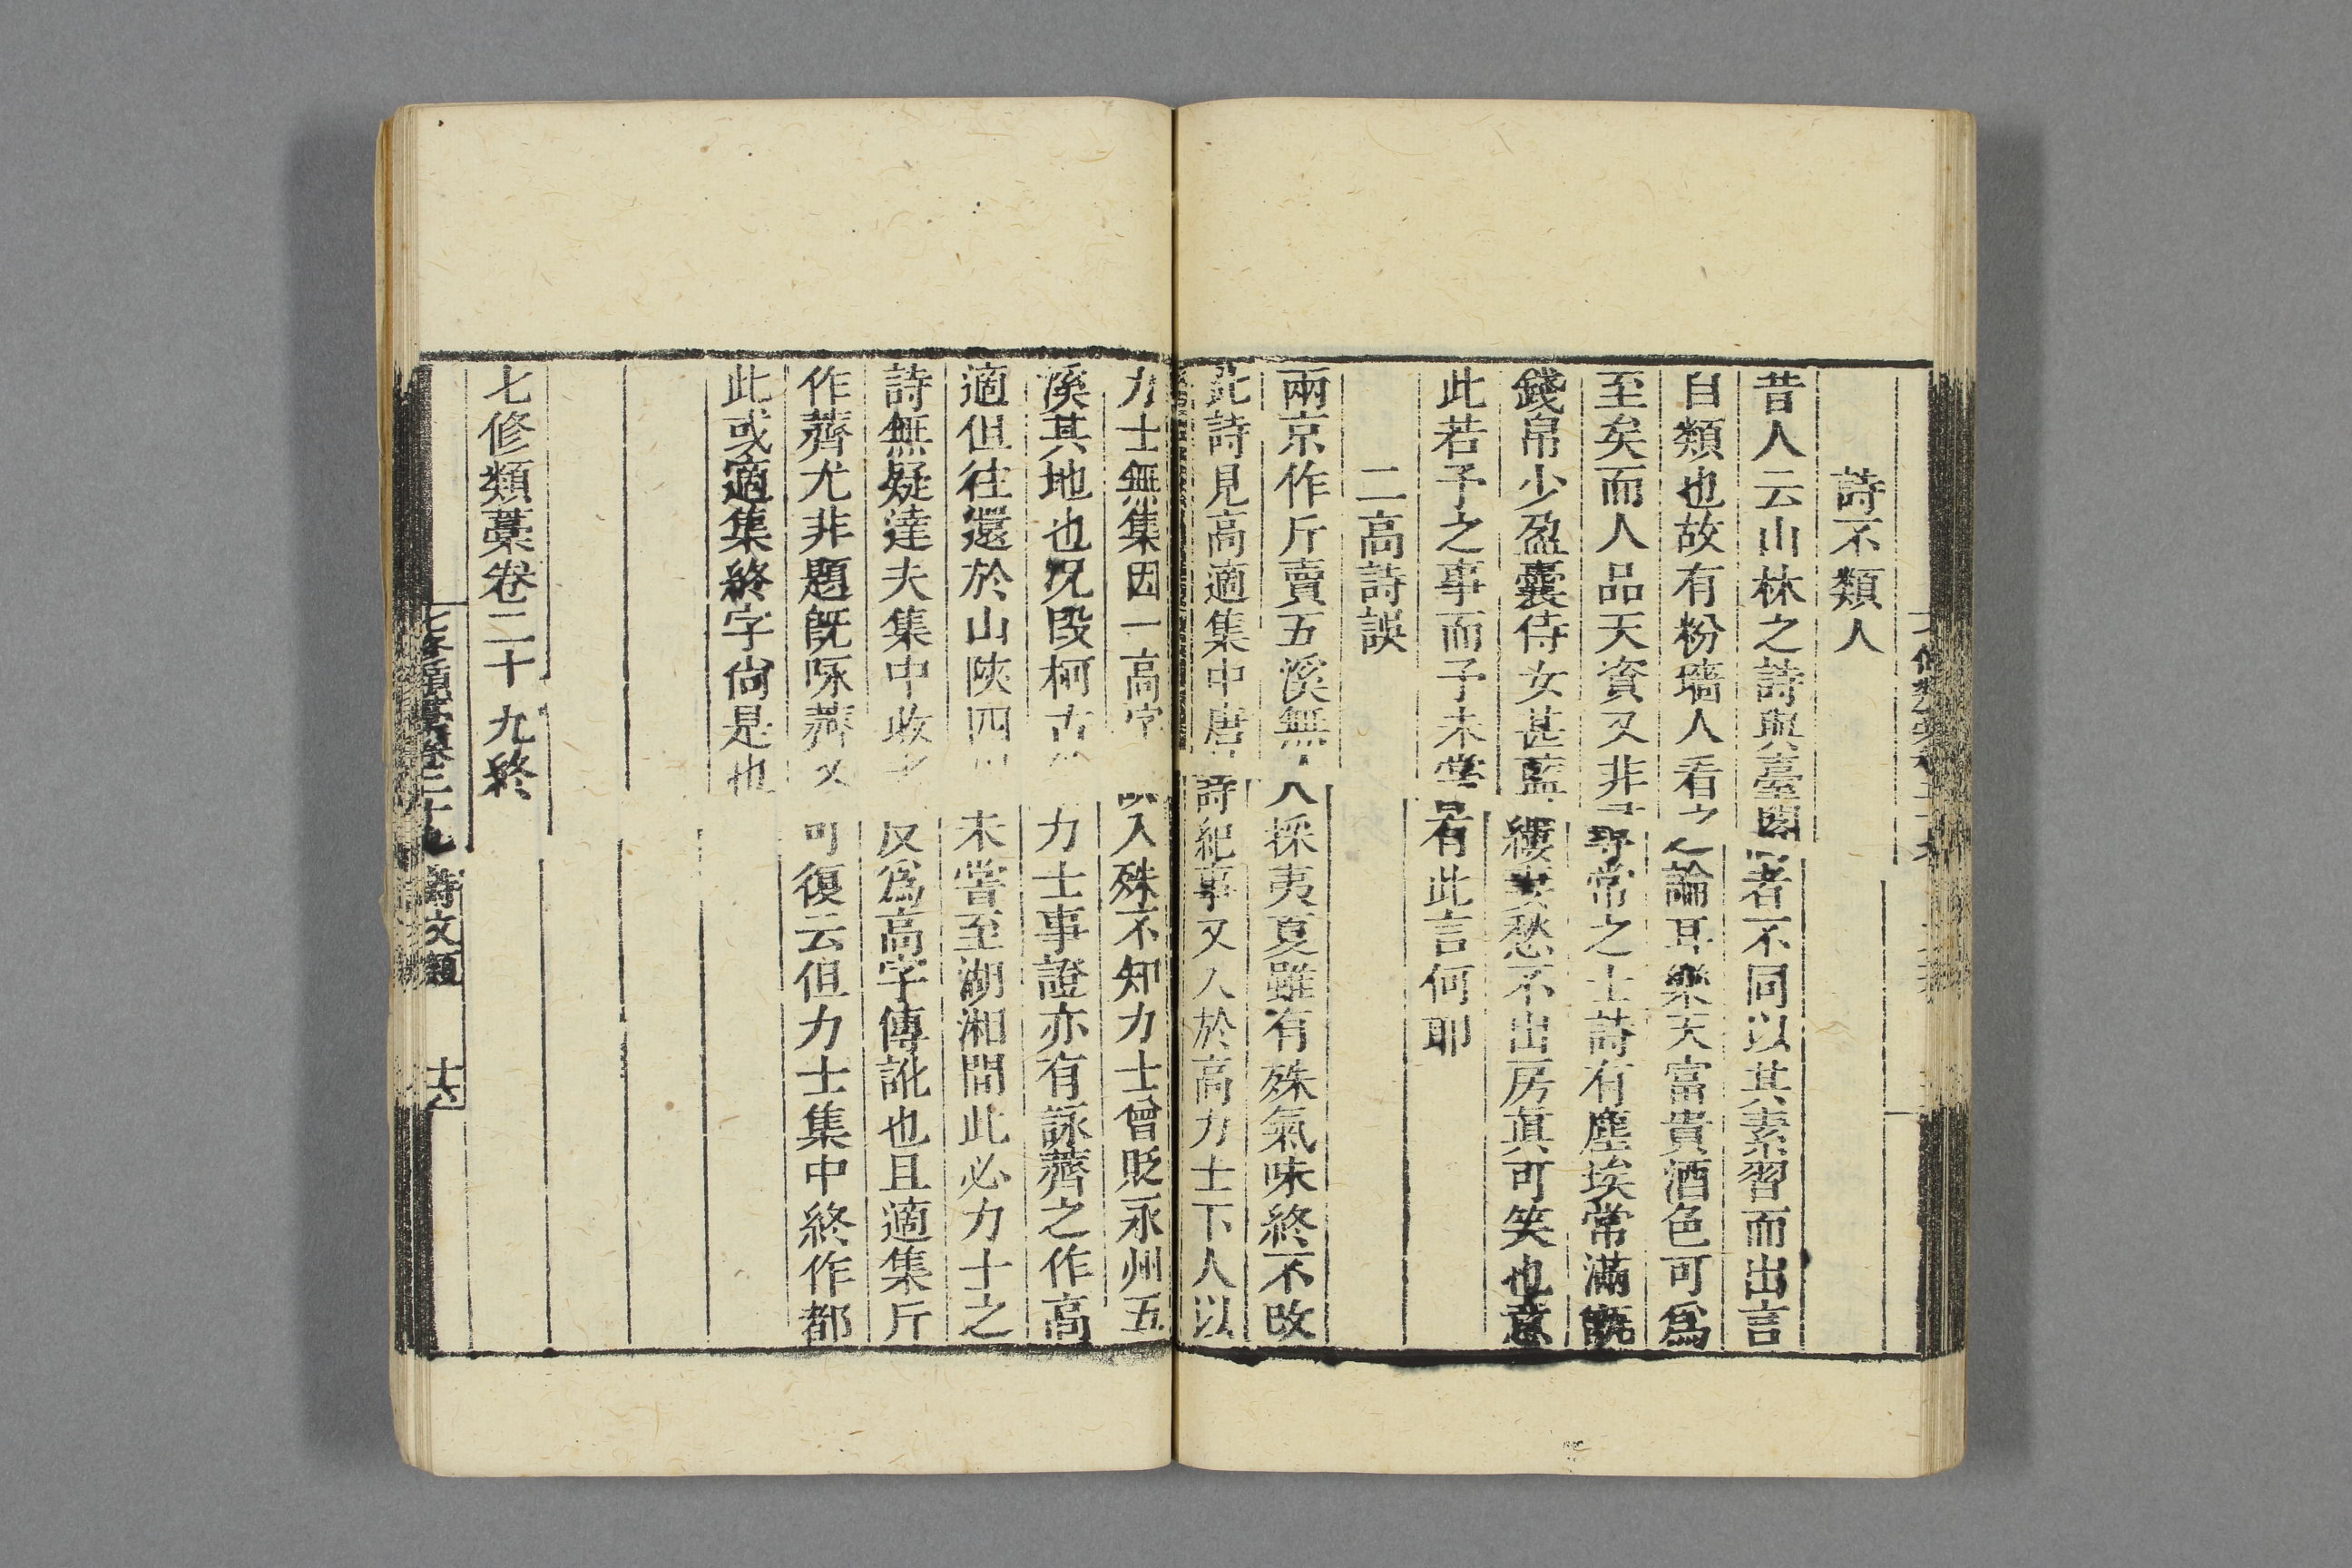 詩不類人
昔人云山林之詩與臺閣者不同以其素習而出言
自類也故有粉墻人看之論耳樂天富貴酒色可爲
至矣而人品天資又非尋常之士詩有塵埃常滿甑
錢帛少盈囊侍女甚藍縷妻愁不出房眞可笑也意
此若予之事而予未嘗有此言何耶
二高詩誤
兩京作斤賣五溪無人採夷夏雖有殊氣味終不改
此詩見高適集中唐詩紀事又入於高力士下人以
力士無集因一高字入殊不知力士曾貶永州五
溪其地也况段柯古力士事證亦有詠薺之作高
適但往還於山陝四未嘗至湖湘間此必力士之
詩無疑達夫集中收反爲高字傳訛也且適集斤
作薺尤非題旣咏薺又可復云但力士集中終作都
此或適集終字尙是也
七修類藁卷二十九終
七修類藁卷二十九 詩文類